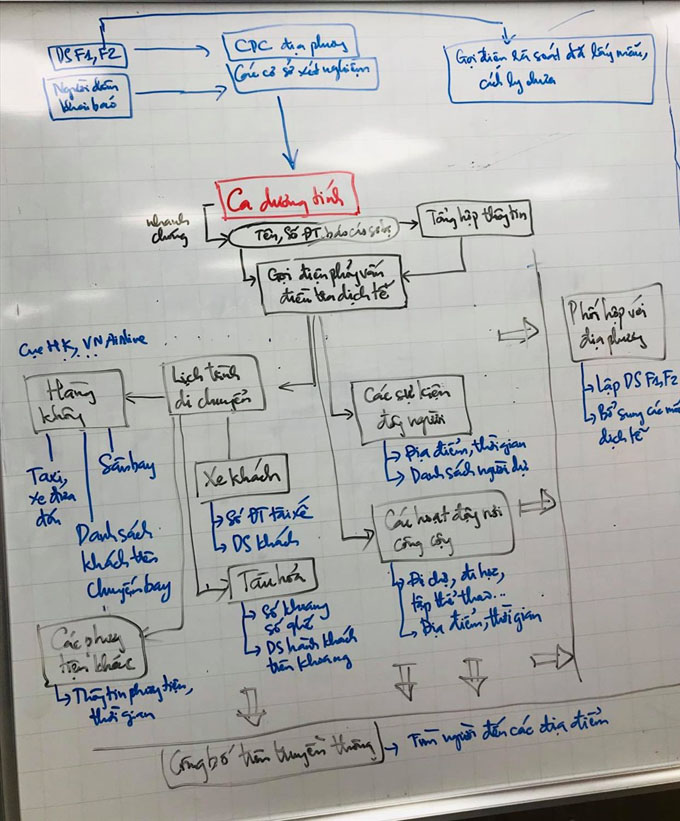 DS F1, F2
CDC địa phương
Các cơ sở xét nghiệm
Gọi điện rà soát đã lấy mẫu,
cách ly chưa
Người dân
khai báo
Ca dương tính
nhanh
chóng
Tên, Số ĐT, báo cáo sơ bộ
Tổng hợp thông tin
Gọi điện phỏng vấn
điều tra dịch tễ
Phối hợp với
địa phương
Lập DS F1, F2
Bổ sung các
dịch tễ
Cục HK, VN Airline
Hàng
không
Lịch trình
di chuyển
Các sự kiện
đông người
Địa điểm, thời gian
Danh sách người dự
Taxi,
xe đưa
đón
Sân bay
Danh sách
khách trên
chuyến bay
Xe khách
Số ĐT tài xế
DS khách
Các hoạt động nơi
công cộng
Đi chợ, đi học,
tập thể thao...
Địa điểm, thời gian
Tàu hỏa
Số khoang
số ghế
DS hành khách
trên khoang
Các phương
tiện khác
Thông tin phương tiện,
thời gian
Công bố trên truyền thông
Tìm người đến các địa điểm